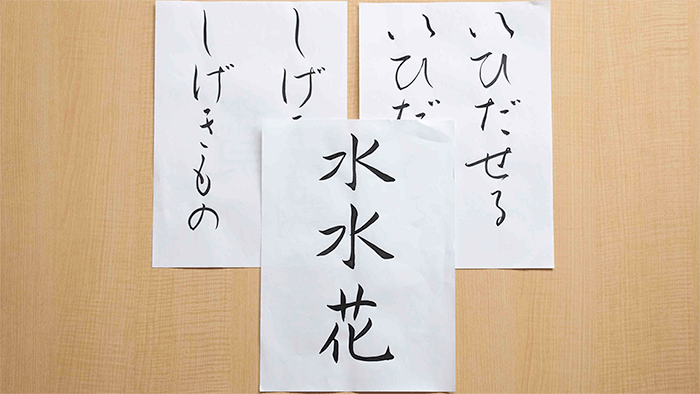 いひだせる
いひだ
しげ
しげきもの
水水花